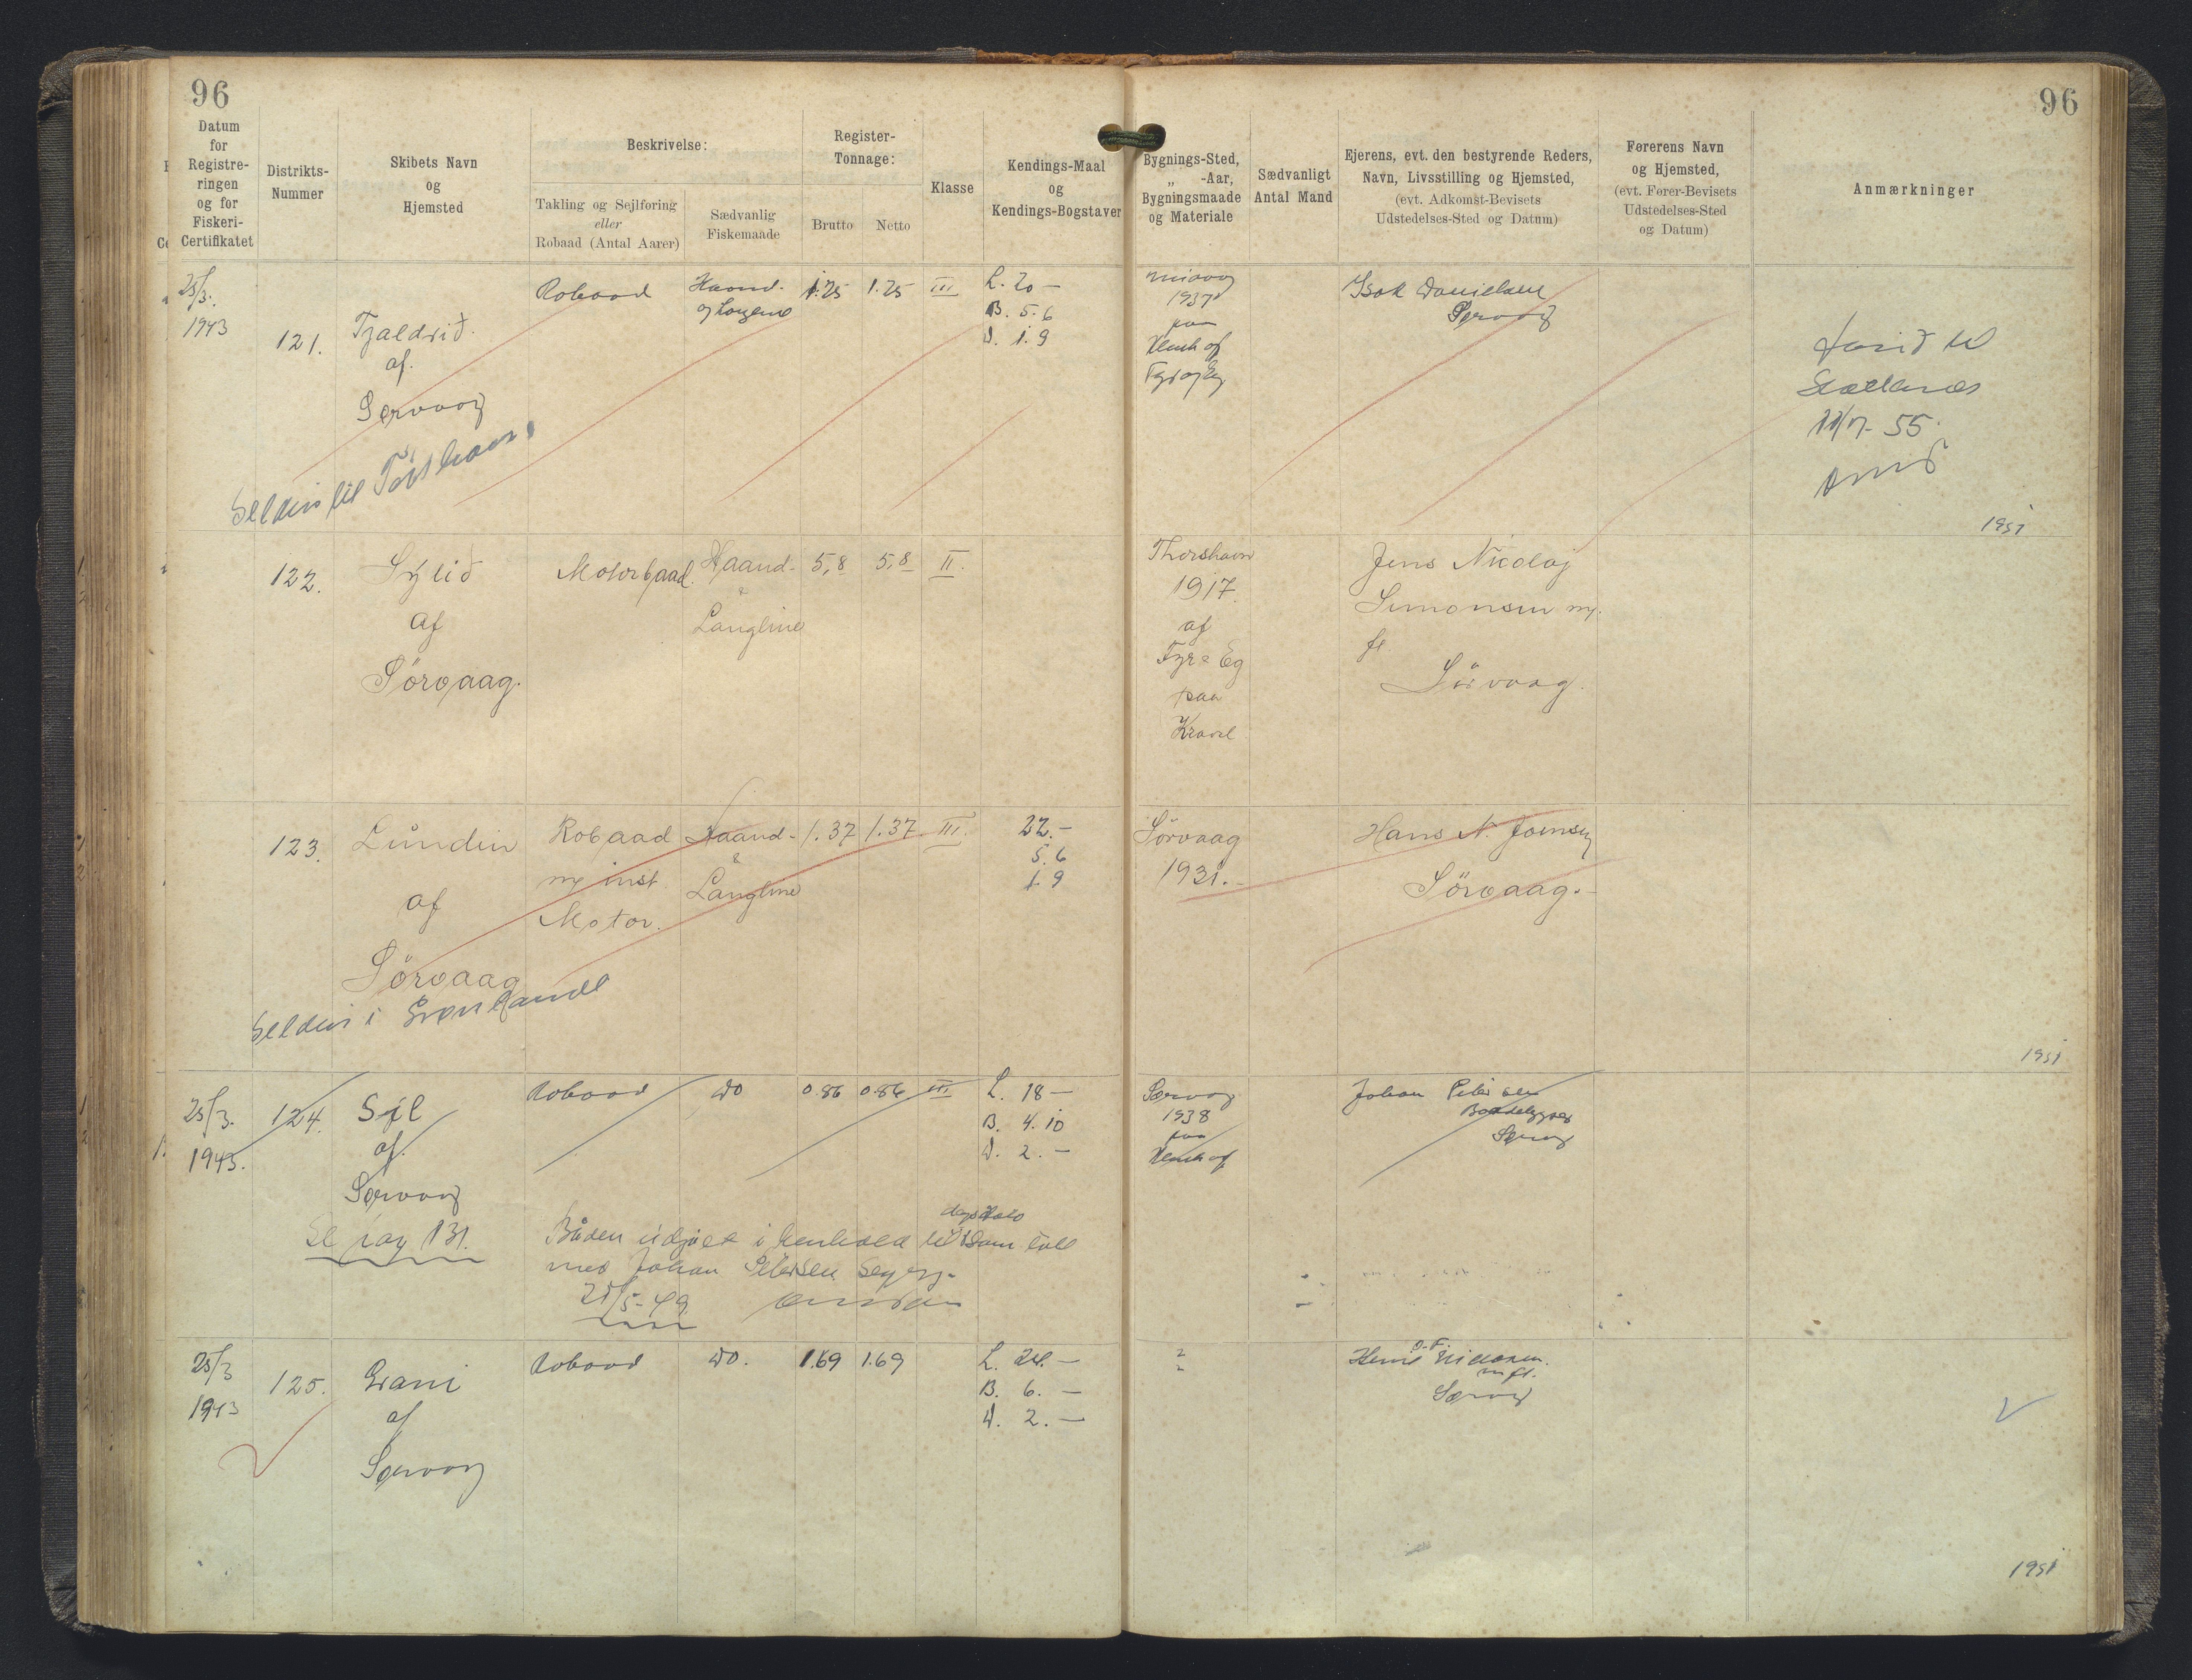 96
96
Datum
for
Registre-
ringen
og for
Fiskeri-
Certifikatet
Distrikts-
Nummer
Skibets Navn
og
Hjemsted
Beskrivelse:
Takling og Sejlføring
eller
Robaad (Antal Aarer)
Sædvanlig
Fiskemaade
Register-
Tonnage:
Brutto
Netto
Klasse
Kendings-Maal
og
Kendings-Bogstaver
Bygnings-Sted,
„ -Aar,
Bygningsmaade
og Materiale
Sædvanligt
Antal Mand
Ejerens, evt. den bestyrende Reders,
Navn, Livsstilling og Hjemsted,
(evt. Adkomst-Bevisets
Udstedelses-Sted og Datum)
Førerens Navn
og Hjemsted,
(evt. Fører-Bevisets
Udstedelses-Sted
og Datum)
Anmærkninger
25/3.
1943
121.
Tjaldrið.
af.
Sørvaag
Robaad
Haand.
og Langline
1.25
1.25
III
L. 20 —
B. 5.6
D. 1.9
Miovag
1937
paa
Klink af
Fyr og Eg
Isak Danielsen
Sørvaag
11/7- 55.
1951
til Tórshavn
122.
Sýlið
af
Sörvaag.
Motorbaad.
Haand-
&
Langline
5,8
5,8
II.
Thorshavn
1917.
af
Fyr & Eg
paa
Kravel
Jens Nicolaj
Simonsen m.
fl.
Sörvaag.
123.
Lundin
af
Sörvaag
Robaad
m inst.
Motor.
Haand-
&
Langline
1.37
1.37
III.
22.-
5.6
1.9
Sörvaag
1931.-
Hans N. Joensen
Sörvaag.-
i Grønland
1951
25/3.
1943.
124.
Sjl
af.
Sørvaag
131.
Robaad
do
0.86
0.86
III
L. 18 —
B. 4.10
D. 2. —
Sørvaag
1938
paa
Klink af
Johan Petersen
Baadebygger
Sørvag
Båden i henhold til
med Johan Petersen
25/5-49.
25/3
1943
125.
Grani
af
Sørvaag
Robaad
do.
1.69
1.69
L. 24. —
B. 6. —
D. 2. —
m fl.
Sørvag
1951